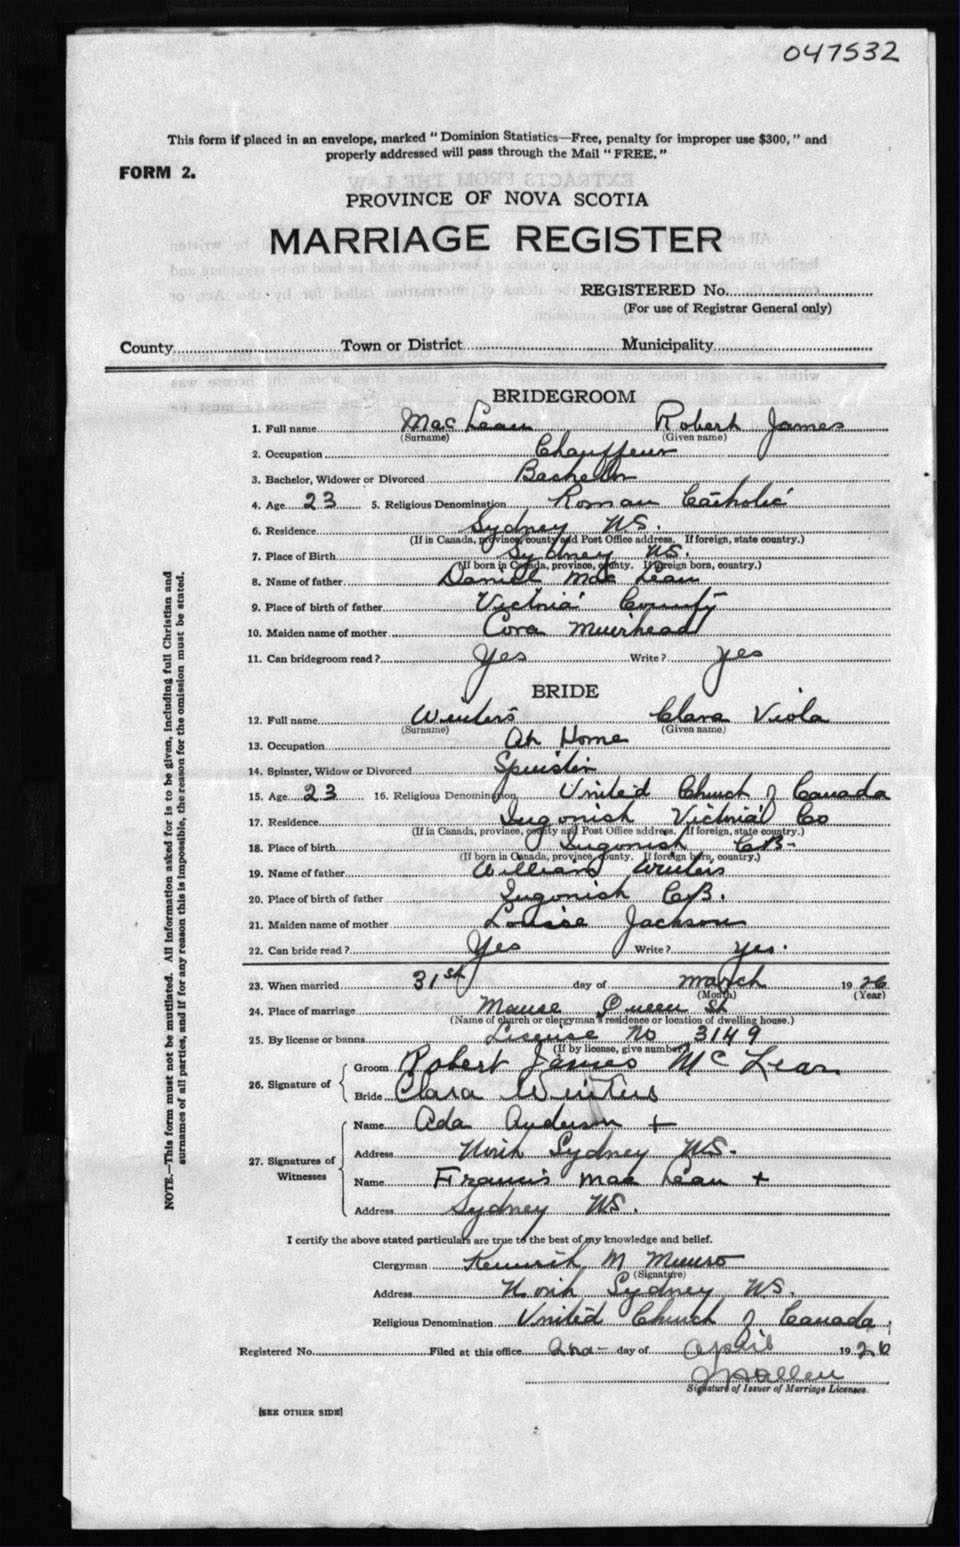 047532
This form if placed in an envelope, marked "Dominion Statistics—Free, penalty for improper use $300," and
properly addressed will pass through the Mail "FREE."
FORM 2.
PROVINCE OF NOVA SCOTIA
MARRIAGE REGISTER
REGISTERED No.
(For use of Registrar General only)
County Town or District Municipality
BRIDEGROOM
1. Full name Mac Lean Robert James
(Surname) (Given name)
2. Occupation Chauffeur
3. Bachelor, Widower or Divorced Bachelor
4. Age 23 5. Religious Denomination Roman Catholic
6. Residence Sydney N.S.
(If in Canada, province, county and Post Office address. If foreign, state country.)
7. Place of Birth Sydney N.S.
(If born in Canada, province, county. If foreign born, country.)
8. Name of father Daniel Mac Lean
9. Place of birth of father Victoria County
10. Maiden name of mother Cora Muirhead
11. Can bridegroom read? Yes Write? yes
BRIDE
12. Full name Winters Clara Viola
(Surname) (Given name)
13. Occupation At Home
14. Spinster, Widow or Divorced Spinster
15. Age 23 16. Religious Denomination United Church of Canada
17. Residence Ingonish Victoria Co
(If in Canada, province, county and Post Office address. If foreign, state country.)
18. Place of birth Ingonish C.B-
(If born in Canada, province, county. If foreign born, country.)
19. Name of father William Winters
20. Place of birth of father Ingonish C.B.
21. Maiden name of mother Louise Jackson
22. Can bride read? Yes Write? yes.
23. When married 31st day of March 1926
(Month) (Year)
24. Place of marriage Manse Queen St
(Name of church or clergyman's residence or location of dwelling house.)
25. By license or banns License No 3149
(If by license, give number)
26. Signature of Groom Robert James McLean
Bride Clara Winters
27. Signatures of Witnesses
Name Ada Anderson +
Address North Sydney N.S.
Name Francis Mac Lean +
Address Sydney N.S.
I certify the above stated particulars are true to the best of my knowledge and belief.
Clergyman Kenneth M Munro
(Signature)
Address North Sydney N.S.
Religious Denomination United Church of Canada.
Registered No. Filed at this office 2nd- day of April 1926
Signature of Issuer of Marriage Licenses.
[SEE OTHER SIDE]
NOTE.—This form must not be mutilated. All information asked for is to be given, including full Christian and
surnames of all parties, and if for any reason this is impossible, the reason for the omission must be stated.